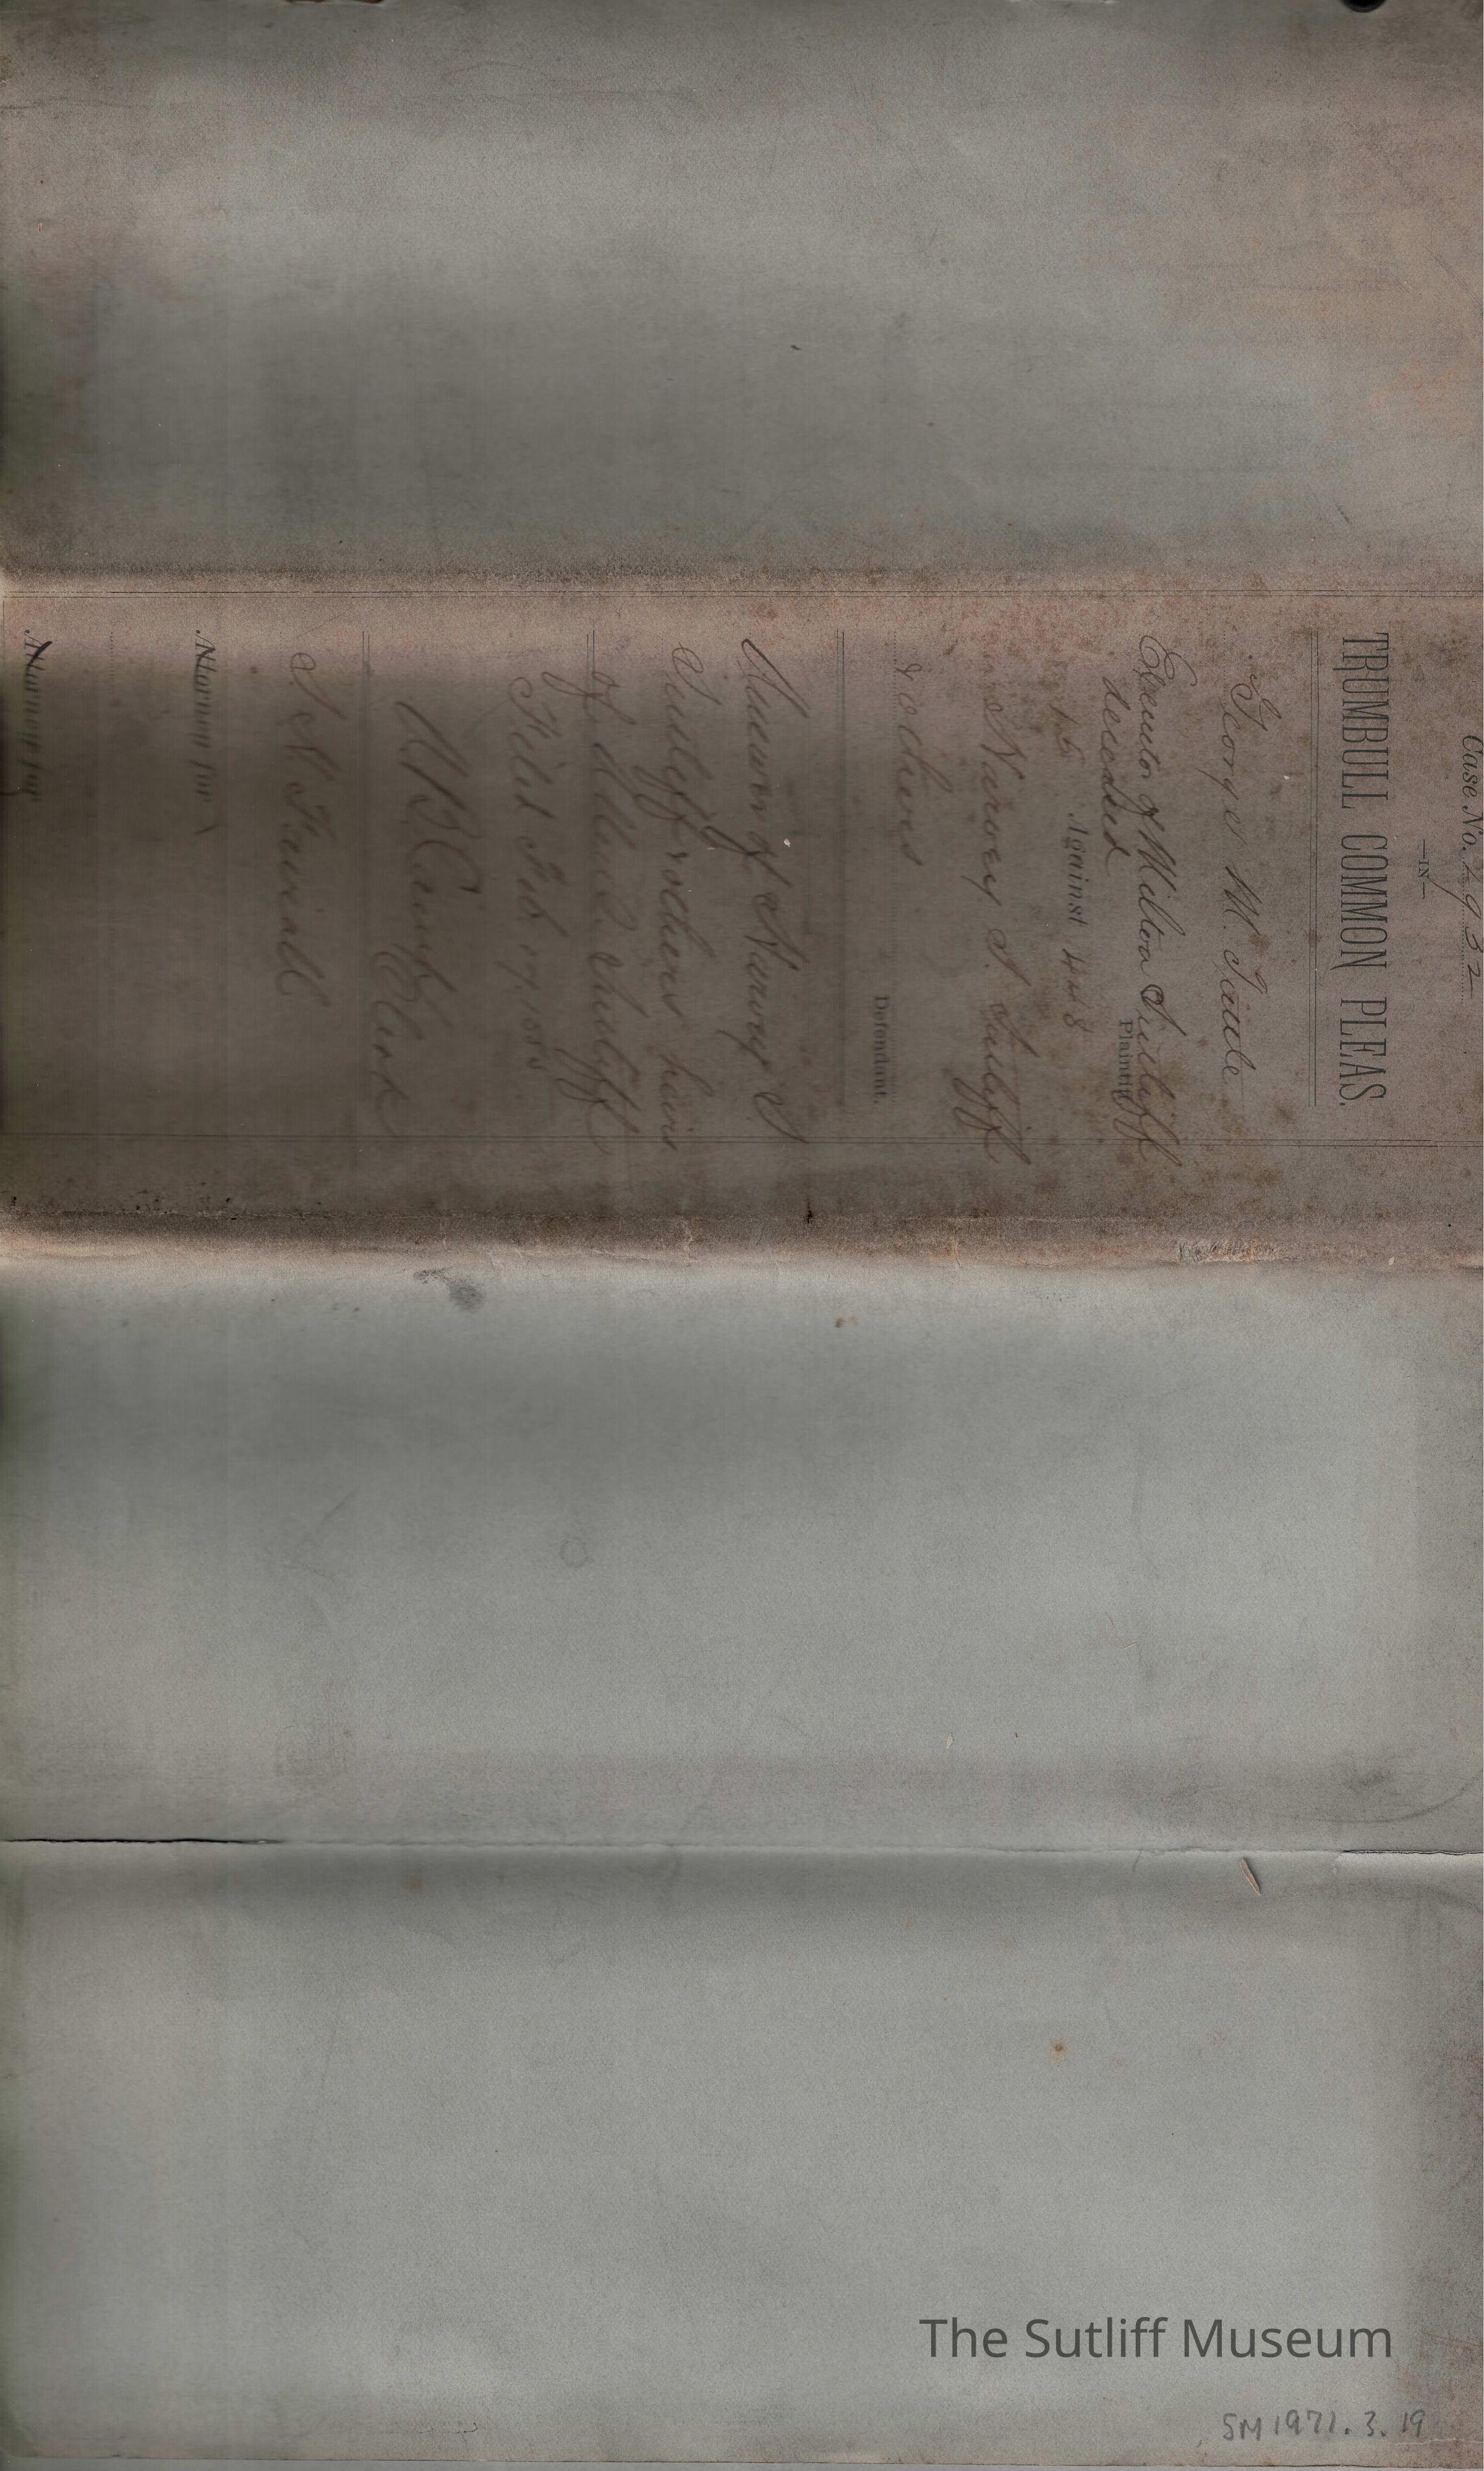 Case No. 2932
—IN—
TRUMBULL COMMON PLEAS.
George M. Tuttle
Executor of Milton Sutliff
Plaintiff
deceased
vs Against 448
Harvey S. Sutliff
& others
Defendant.
Answer of Harvey S
Sutliff & others heirs
of Sutliff
Filed Feb 17, 1885
Clerk
Attorney for
Attorney for
The Sutliff Museum
SM1971.3.19